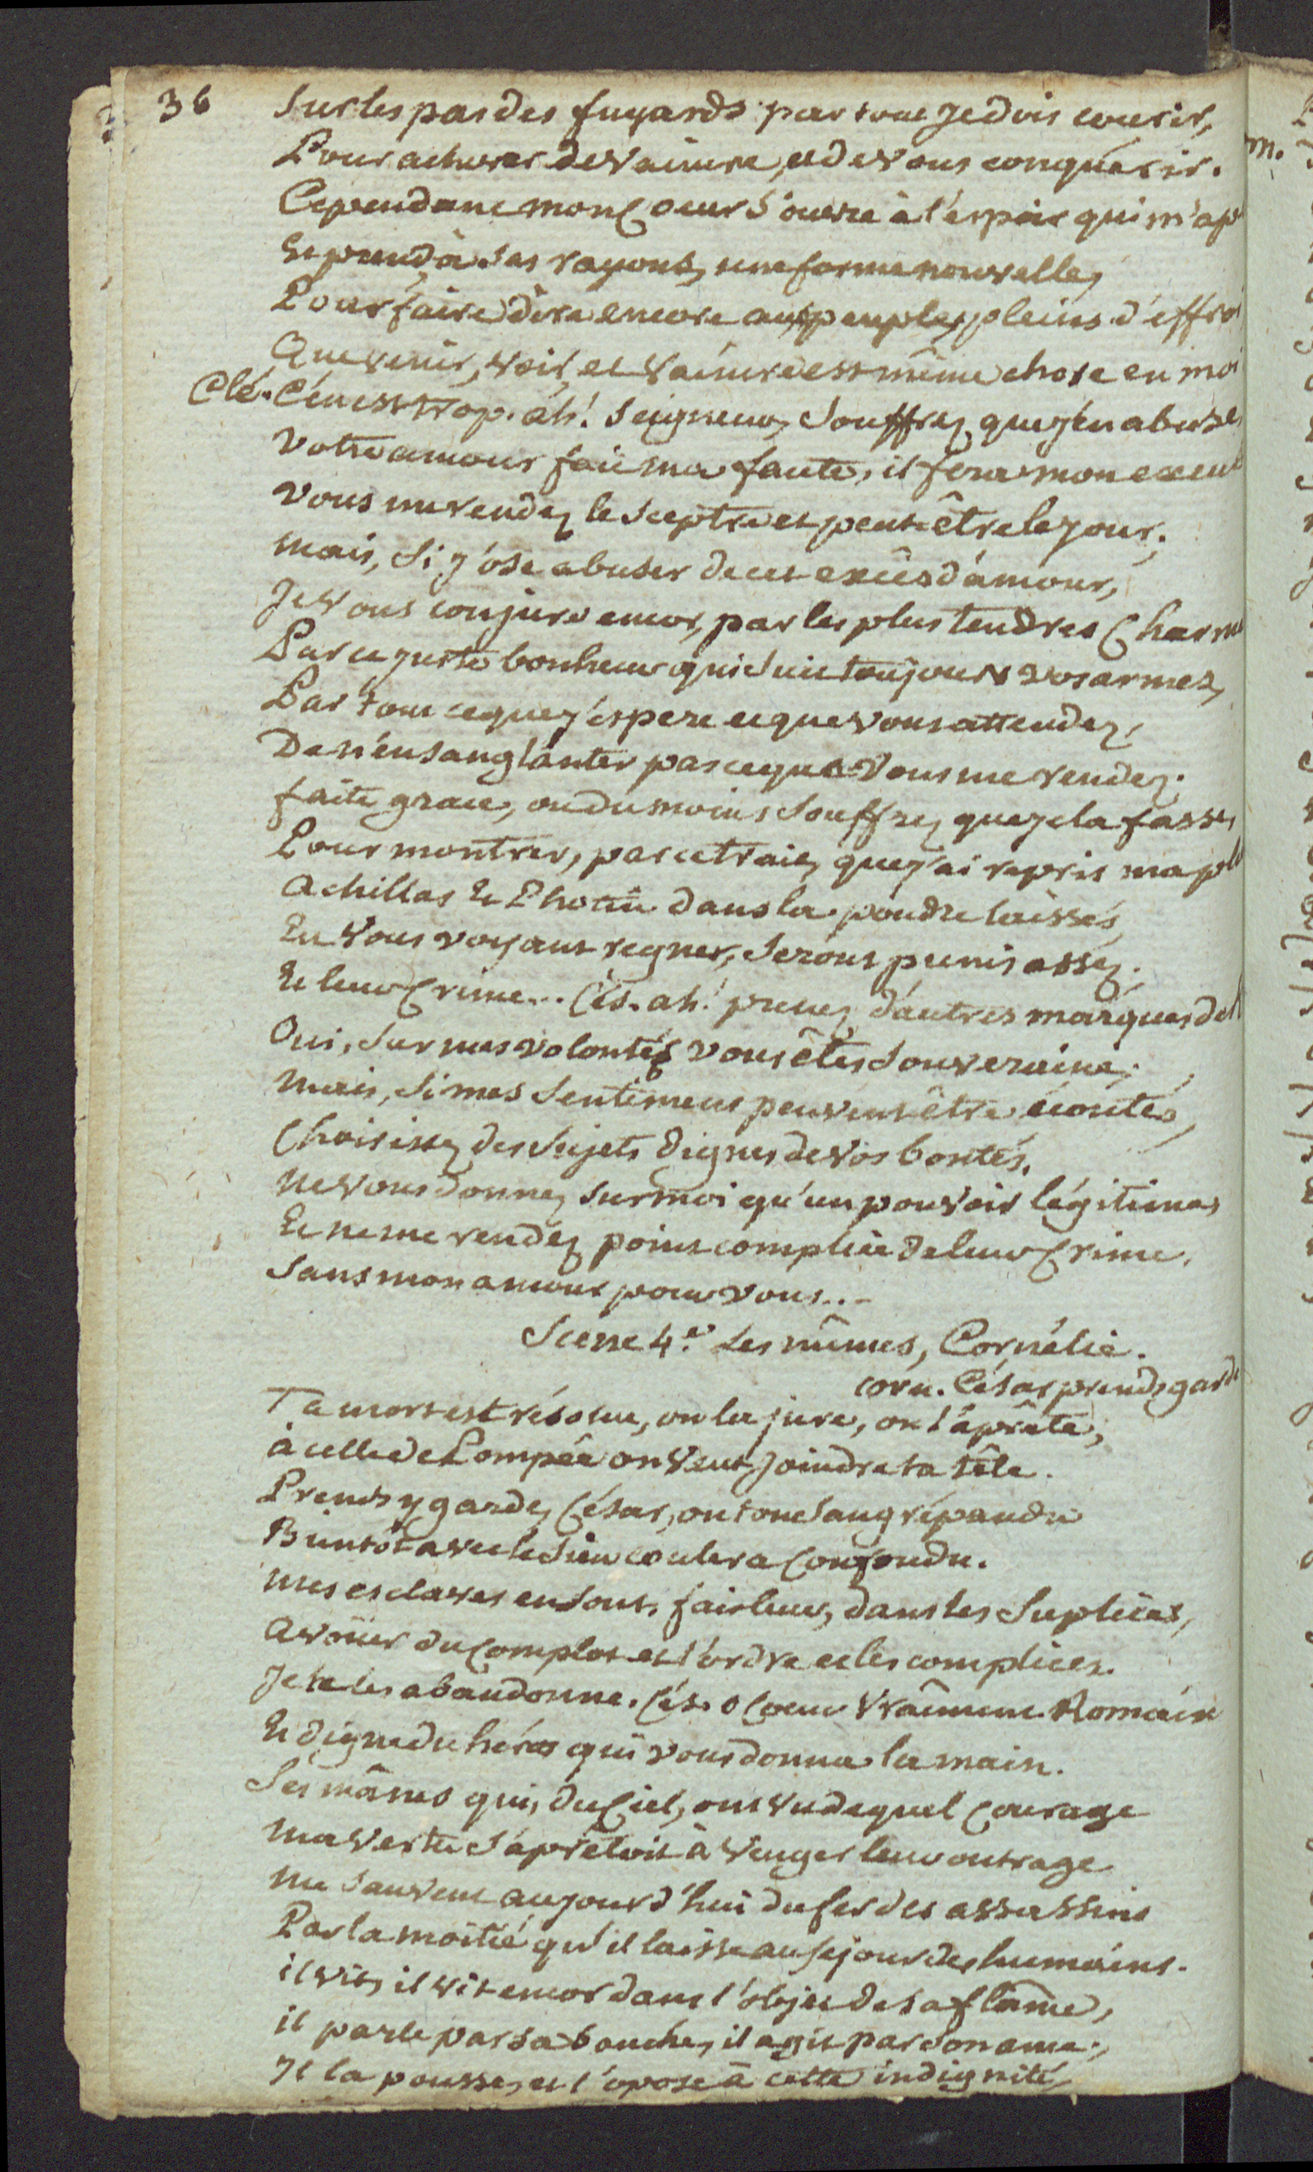 36
Sur les pas des fuyards par tout Je dois courir,
Pour achever de vaincre, et de vous conquérir.
Cependant mon Coeur s'ouvre à l'espoir qui m'ap
Et prend à ses rayons, une forme nouvelle,
Pour faire dire encore aux peuples pleins d'effroi
Que venir, voir, et vaincre est même chose en moi
Clé. C'en est trop. ah! Seigneur, Souffrez que j'en abuse,
Votre amour fait ma faute, il fera mon excuse
Vous me rendez le Sceptre et peut-être le jour;
mais, Si j'ose abuser de cet excès d'amour,
Je vous conjure encor, par les plus tendres Charmes
Par ce juste bonheur qui Suit toujours vos armes,
Par tout ce que j'espere et que vous attendez,
De n'ensanglanter pas ce que vous me rendez.
faite grace, ou du moins Souffrez que je la fasse,
Pour montrer, par ce trait, que j'ai repris ma pla
Achillas Et Photin dans la poudre laissés,
En vous voyant regner, Seront punis assez;
Et leur Crime... Cés. ah! prenez d'autres marques de
Oui, Sur mes volontés vous êtes Souveraine;
Mais, Si mes Sentimens peuvent être écoutés,
Choisissez des Sujets dignes de vos bontés.
Ne vous donnez Sur moi qu'un pouvoir légitime,
Et ne me rendez point complice de leur Crime.
Sans mon amour pour vous...
Scene 4.e Les mêmes, Cornélie.
Corn. César prends garde
Ta mort est résolue, on la jure, on l'aprête,
à celle de Pompée on veut joindre ta tête.
Prends y garde, César, ou ton Sang répandu
Bientôt avec le Sien coulera Confondu.
Mes esclaves en Sont, fais leur, dans les Suplices,
Avoüer du Complot et l'ordre et les complices.
Je te les abandonne. Cés. O Coeur vraîment Romain
Et digne du héros qui vous donna la main.
Ses mânes qui, du Ciel, ont vu de quel Courage
Ma vertu S'aprêtoit à venger leur outrage
Me Sauvent aujourd'hui du fer des assassins
Par la moitié qu'il laisse au Séjour des humains.
il vit, il vit encor dans l'objet de sa flâme,
il parle par sa bouche, il agit par Son ame;
Il la pousse, et l'opose à cette indignité,